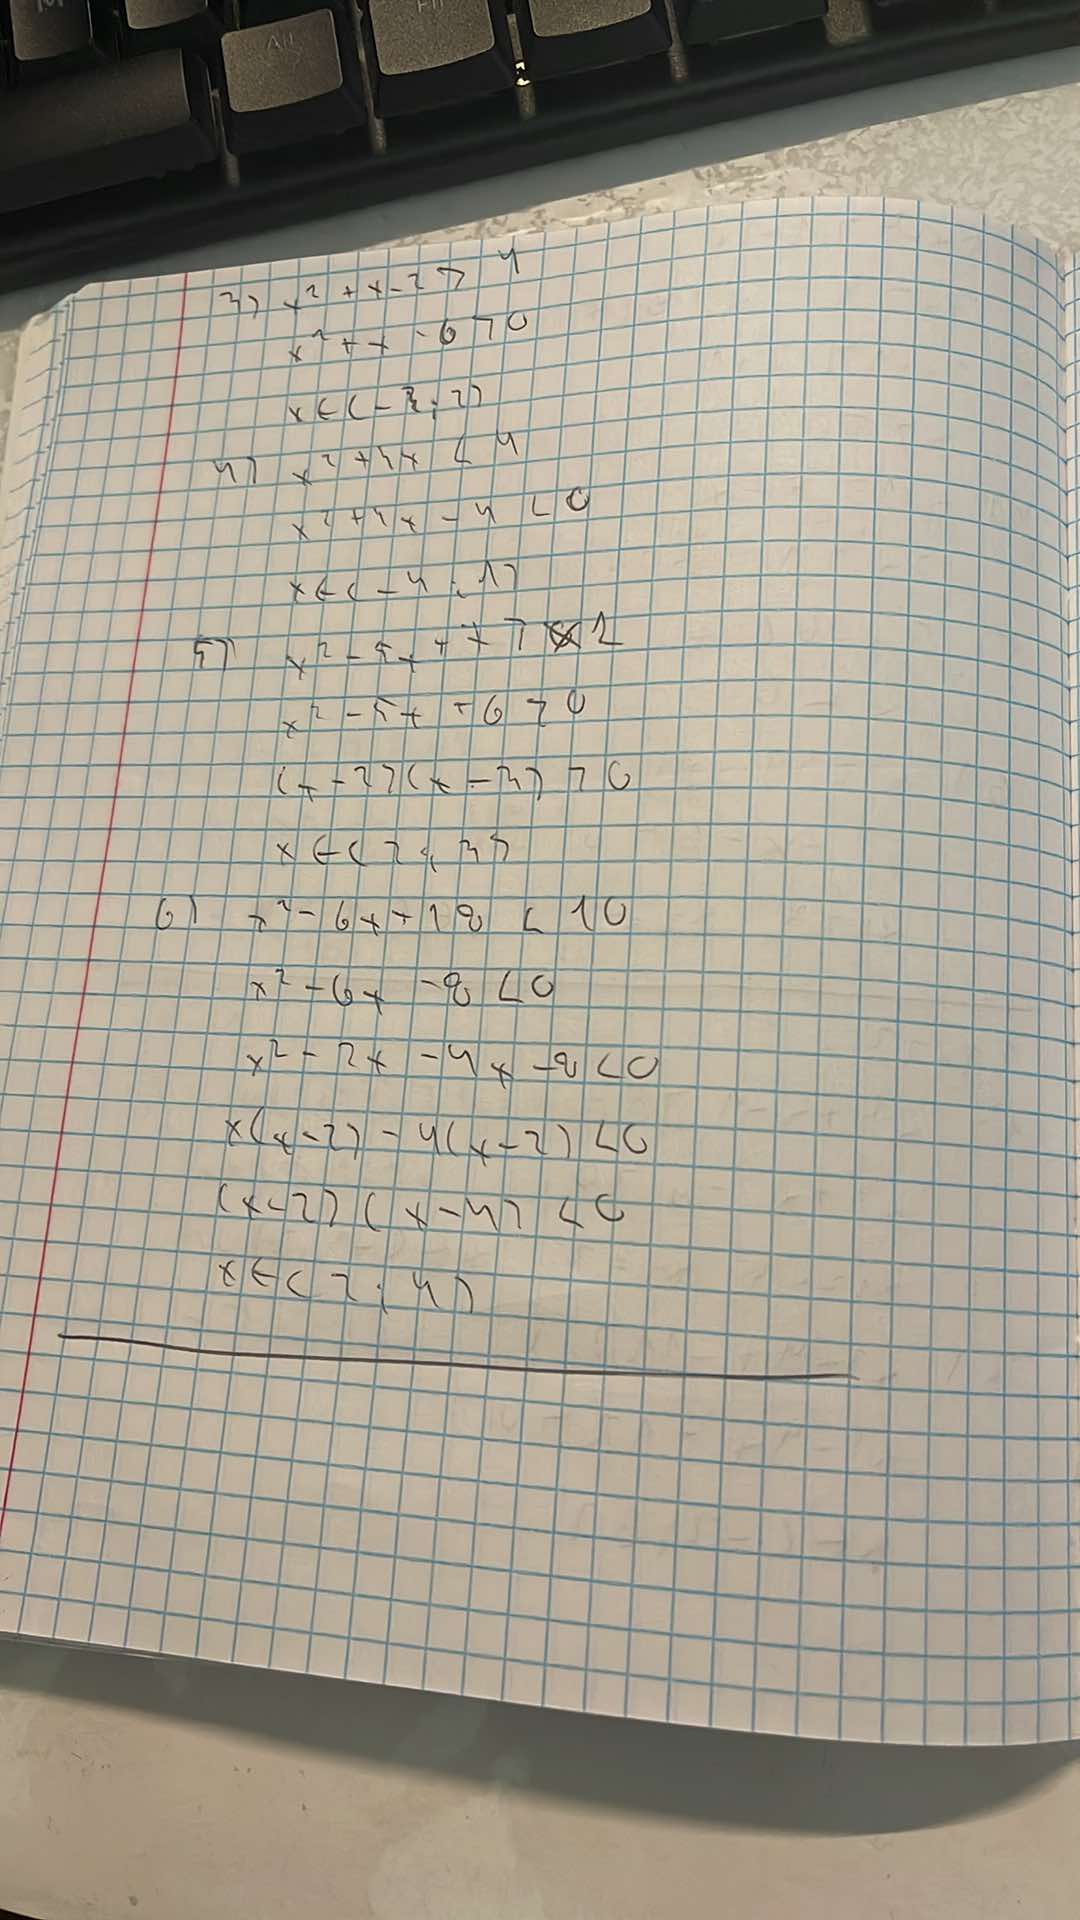 Alt
3) x² + x - 2 > 4
x² + x - 6 > 0
x ∈ (-3; 2)
4) x² + 4x < 4
x² + 4x - 4 < 0
x ∈ (-4; 1)
5) x² - 5x + 7 > 1
x² - 5x + 6 > 0
(x - 2)(x - 3) > 0
x ∈ (2; 3)
6) x² - 6x + 18 < 10
x² - 6x - 8 < 0
x² - 2x - 4x - 8 < 0
x(x - 2) - 4(x - 2) < 0
(x - 2)(x - 4) < 0
x ∈ (2; 4)